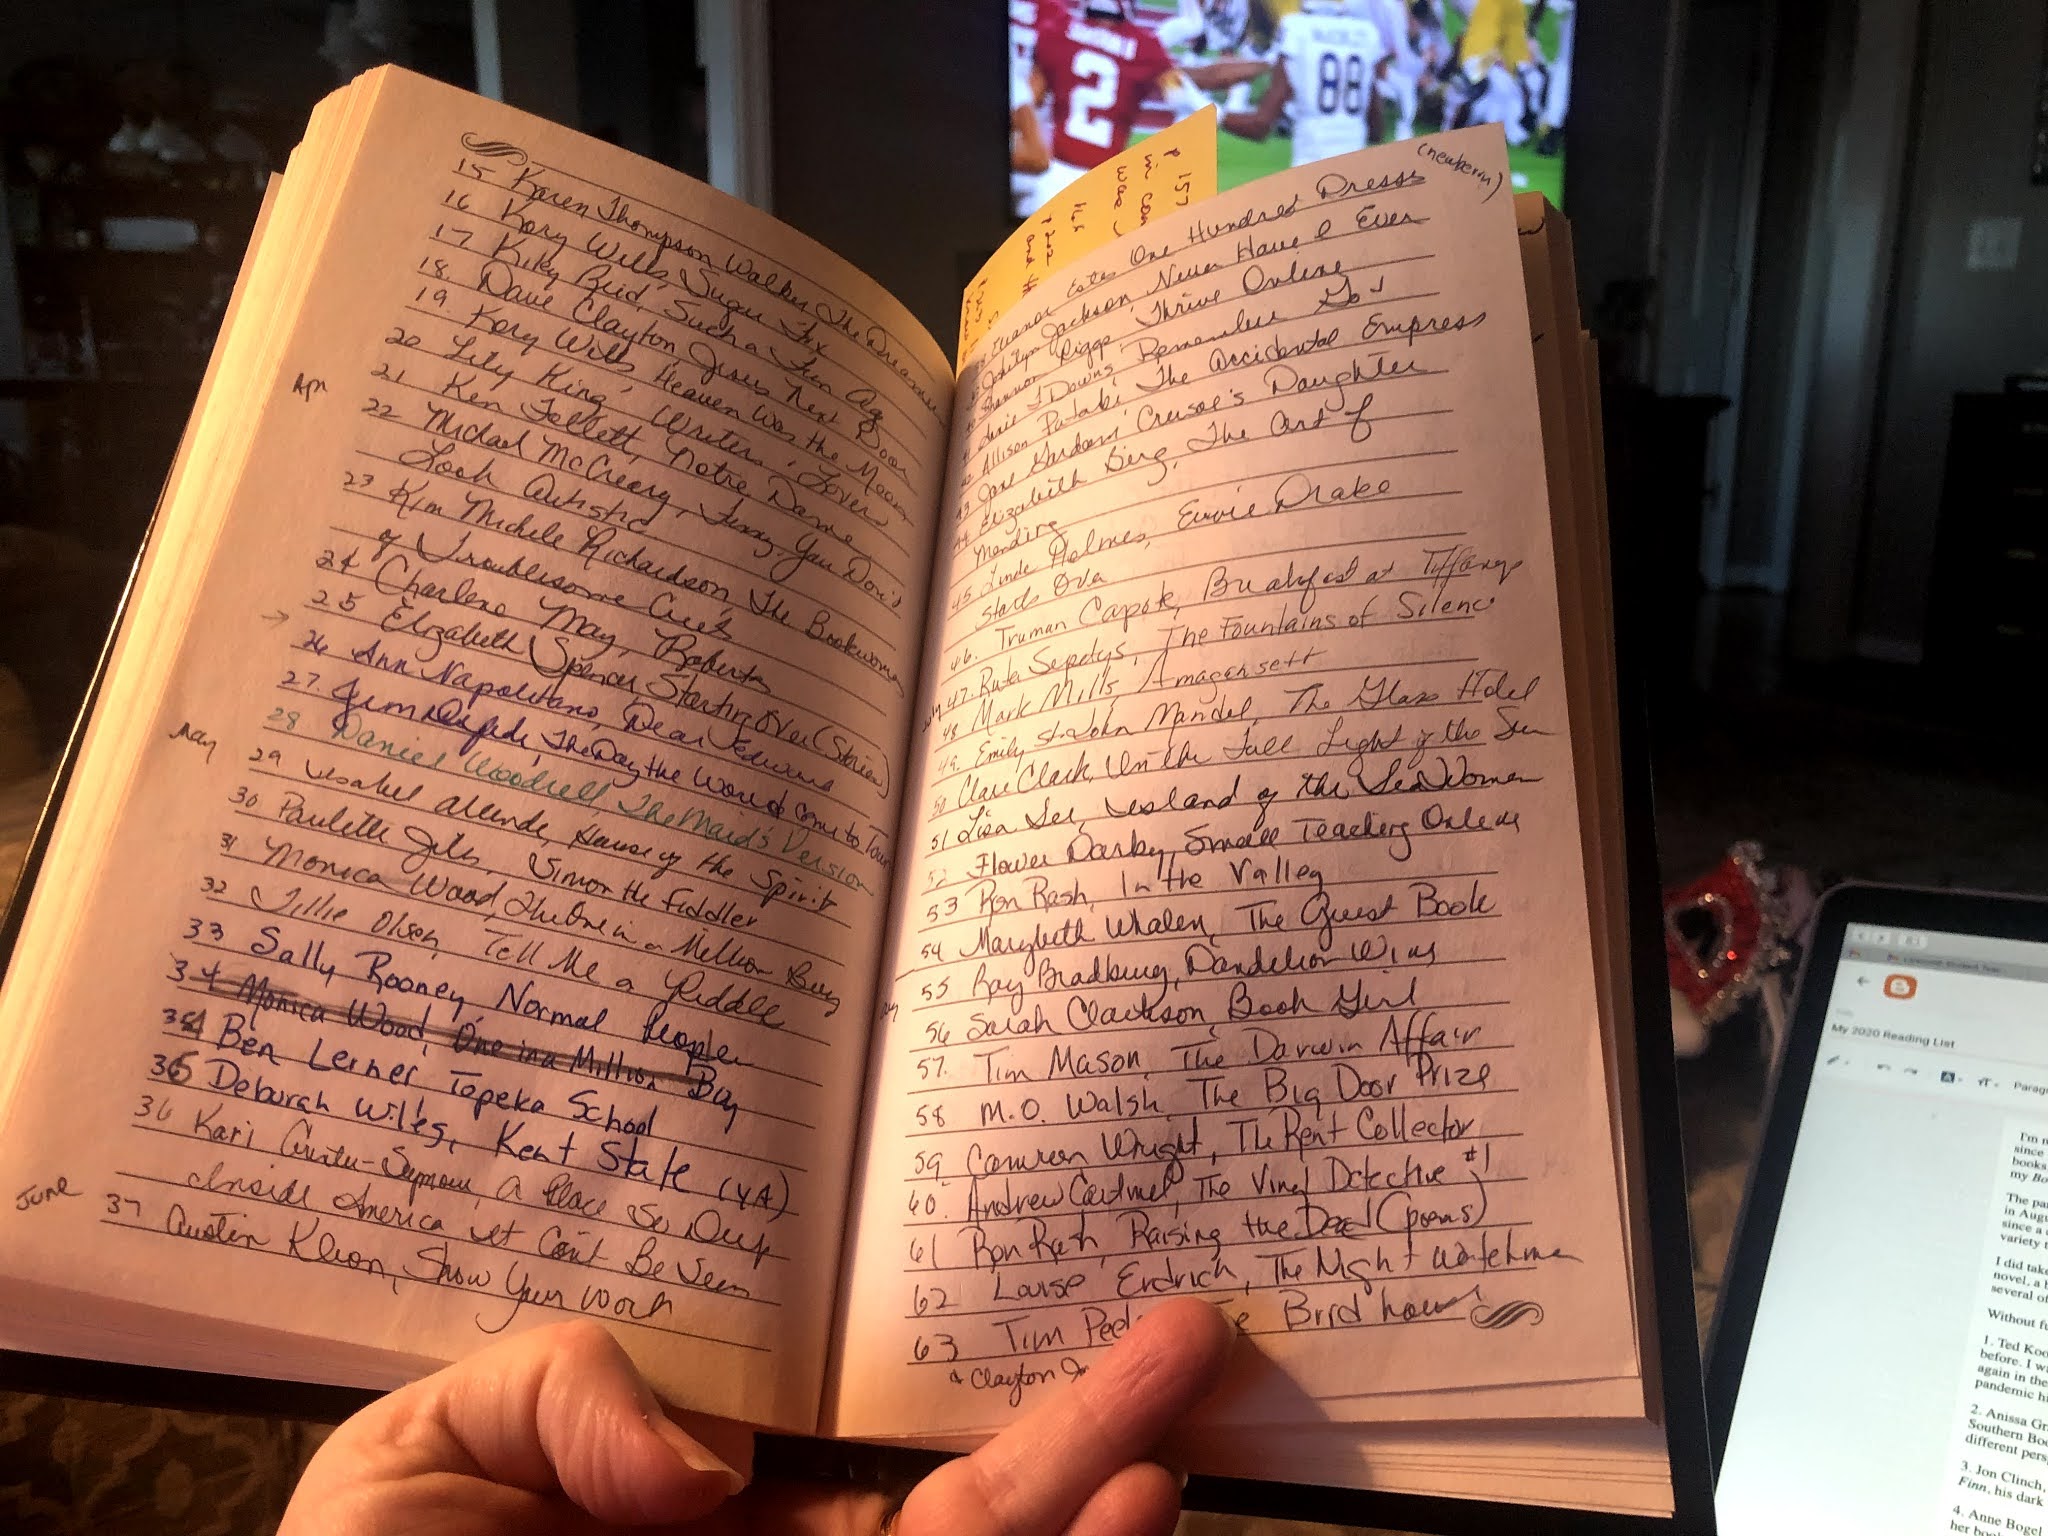 15 Karen Thompson Walker The Dreamers
16 Kory Wills, Sugar Fix
17 Kiley Reid, Such a Fun Age
18. Dave Clayton Jesus Next Door
19. Kory Wills Heaven Was the Moon
Apr
20 Lily King, Writers, Lovers
21 Ken Follett, Notre Dame
22 Michael McCreary, Funny, You Don't
Look Autistic
23 Kim Michele Richardson, The Bookwoman
of Troublesome Creek
24 Charlene May, Roberts
25 Elizabeth Spencer Starting Over (Stories)
26 Ann Napolitano, Dear Edward
27. Jim Defede, The Day the World Came to Town
May
28 Daniel Woodrell, The Maid's Version
29 Isabel Allende, House of the Spirit
30 Paulette Jiles, Simon the Fiddler
31 Monica Wood, The One in a Million Boy
32 Tillie Olsen, Tell Me a Riddle
33 Sally Rooney, Normal People
34 Monica Wood, One in a Million Boy
34 Ben Lerner Topeka School
35 Deborah Wiles, Kent State (YA)
36 Kari Gunter-Seymour, A Place So Deep
Inside America It Can't Be Seen
June
37 Austin Kleon, Show Your Work
(newberry)
Eleanor Estes One Hundred Dresses
Joshilyn Jackson Never Have I Ever
Shannon Riggs, Thrive Online
Annie F Downs, Remember God
Allison Pataki The Accidental Empress
43 Jane Gardam Crusoe's Daughter
44 Elizabeth Berg, The Art of
Mending
45 Linda Holmes, Evvie Drake
Starts Over
46. Truman Capote, Breakfast at Tiffanys
47. Ruta Sepetys, The Fountains of Silence
July
48 Mark Mills, Amagansett
49. Emily St. John Mandel, The Glass Hotel
50 Clare Clark, In the Full Light of the Sun
51 Lisa See, Island of the Sea Women
52 Flower Darby, Small Teaching Online
53 Ron Rash, In the Valley
54 Marybeth Whalen, The Guest Book
55 Ray Bradbury, Dandelion Wine
56 Sarah Clarkson, Book Girl
57. Tim Mason, The Darwin Affair
58 M.O. Walsh, The Big Door Prize
59 Camron Wright, The Rent Collector
60. Andrew Cartmel, The Vinyl Detective #1
61 Ron Rash, Raising the Dead (poems)
62 Louise Erdrich, The Night Watchman
63 Tim Birdhouse
& Clayton
P 157
in
2
88
My 2020 Reading List
Parag
I'm
since
books
my Bo
The pa
in Augu
since a
variety
I did take
novel, a
several of
Without fu
1. Ted Koo
before. I
again in the
pandemic hi
2. Anissa Gr
Southern Boo
different pers
3. Jon Clinch,
Finn, his dark
4. Anne Bogel
her boo